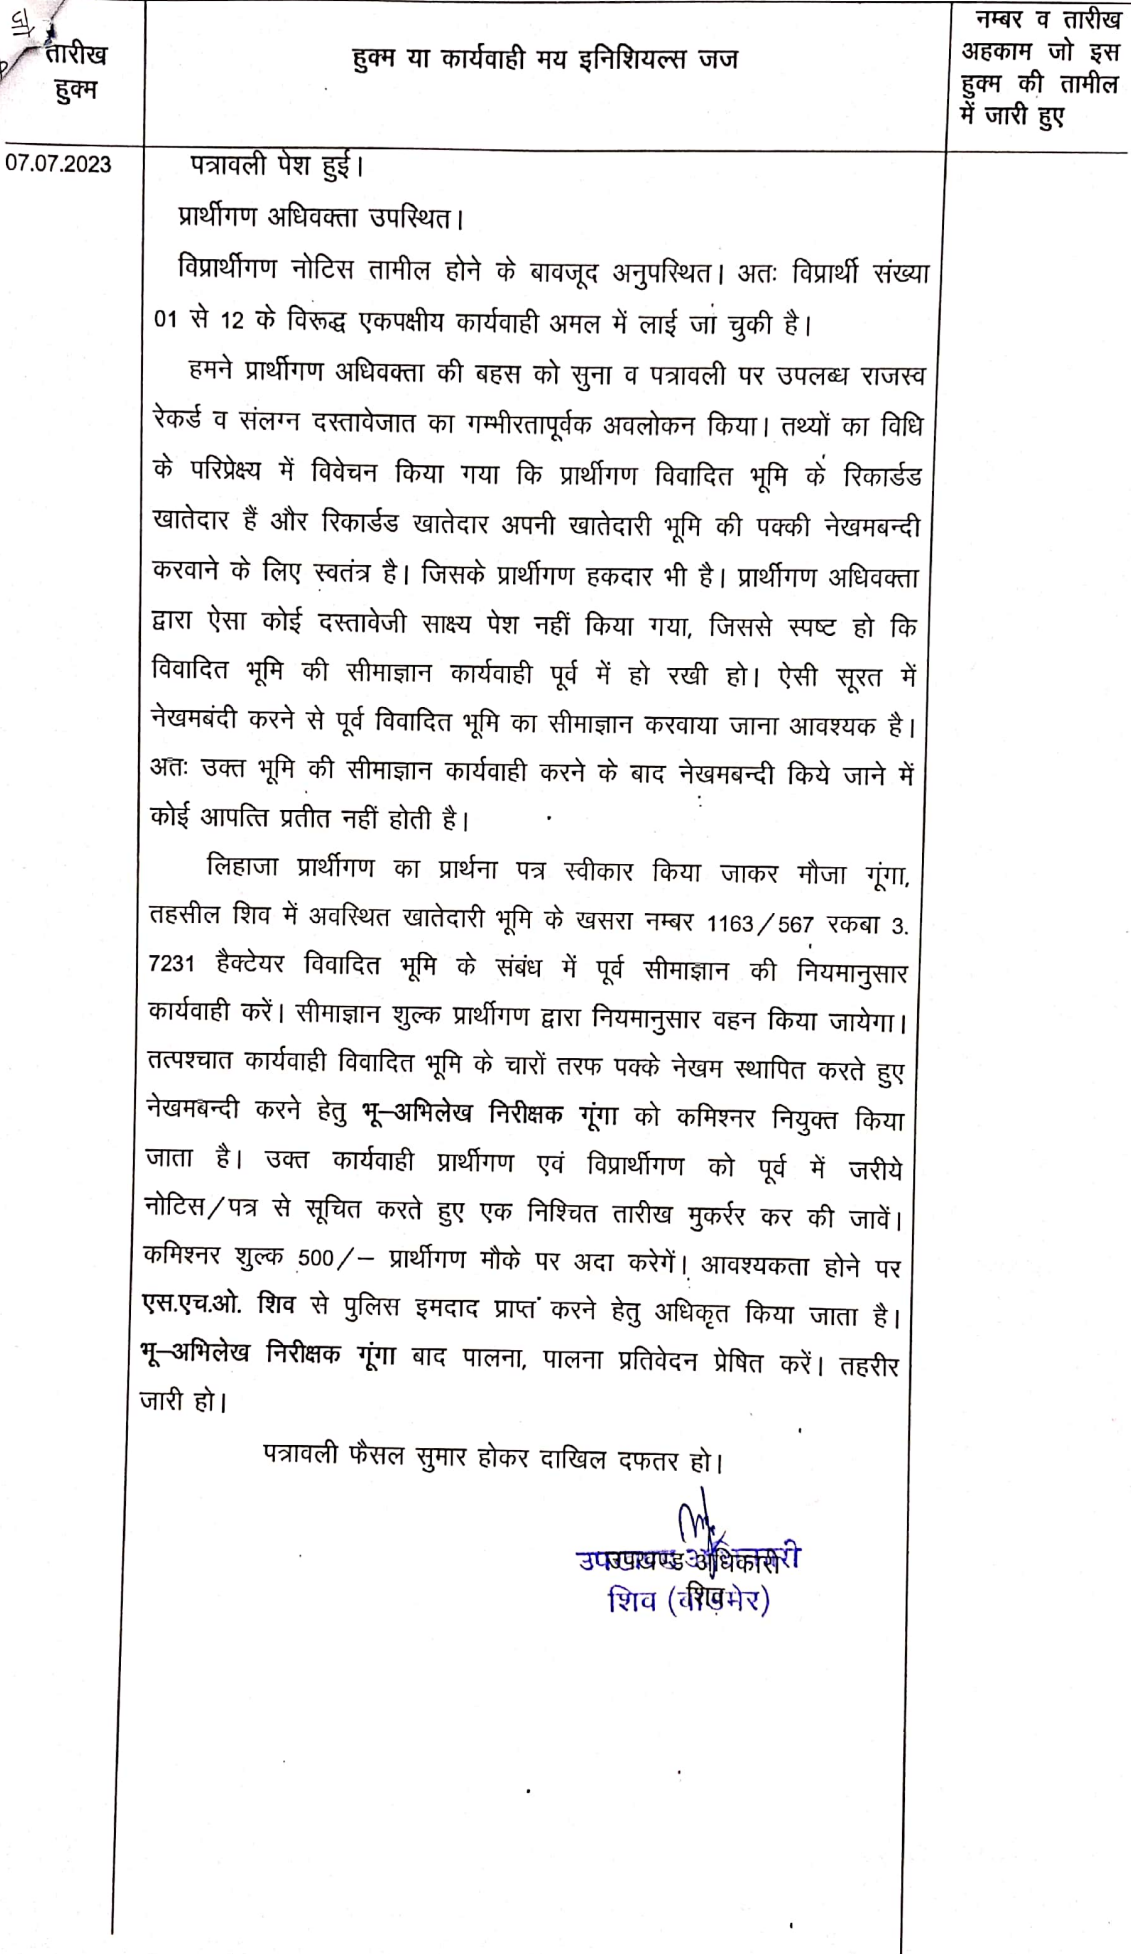 तारीख
हुक्म
हुक्म या कार्यवाही मय इनिशियल्स जज
नम्बर व तारीख
अहकाम जो इस
हुक्म की तामील
में जारी हुए
07.07.2023
पत्रावली पेश हुई।
प्रार्थीगण अधिवक्ता उपस्थित।
विप्रार्थीगण नोटिस तामील होने के बावजूद अनुपस्थित। अतः विप्रार्थी संख्या
01 से 12 के विरूद्ध एकपक्षीय कार्यवाही अमल में लाई जा चुकी है।
हमने प्रार्थीगण अधिवक्ता की बहस को सुना व पत्रावली पर उपलब्ध राजस्व
रेकर्ड व संलग्न दस्तावेजात का गम्भीरतापूर्वक अवलोकन किया। तथ्यों का विधि
के परिप्रेक्ष्य में विवेचन किया गया कि प्रार्थीगण विवादित भूमि के रिकार्डड
खातेदार हैं और रिकार्डड खातेदार अपनी खातेदारी भूमि की पक्की नेखमबन्दी
करवाने के लिए स्वतंत्र है। जिसके प्रार्थीगण हकदार भी है। प्रार्थीगण अधिवक्ता
द्वारा ऐसा कोई दस्तावेजी साक्ष्य पेश नहीं किया गया, जिससे स्पष्ट हो कि
विवादित भूमि की सीमाज्ञान कार्यवाही पूर्व में हो रखी हो। ऐसी सूरत में
नेखमबंदी करने से पूर्व विवादित भूमि का सीमाज्ञान करवाया जाना आवश्यक है।
अतः उक्त भूमि की सीमाज्ञान कार्यवाही करने के बाद नेखमबन्दी किये जाने में
कोई आपत्ति प्रतीत नहीं होती है।
लिहाजा प्रार्थीगण का प्रार्थना पत्र स्वीकार किया जाकर मौजा गूंगा,
तहसील शिव में अवस्थित खातेदारी भूमि के खसरा नम्बर 1163/567 रकबा 3.
7231 हैक्टेयर विवादित भूमि के संबंध में पूर्व सीमाज्ञान की नियमानुसार
कार्यवाही करें। सीमाज्ञान शुल्क प्रार्थीगण द्वारा नियमानुसार वहन किया जायेगा।
तत्पश्चात कार्यवाही विवादित भूमि के चारों तरफ पक्के नेखम स्थापित करते हुए
नेखमबन्दी करने हेतु भू–अभिलेख निरीक्षक गूंगा को कमिश्नर नियुक्त किया
जाता है। उक्त कार्यवाही प्रार्थीगण एवं विप्रार्थीगण को पूर्व में जरीये
नोटिस/पत्र से सूचित करते हुए एक निश्चित तारीख मुकर्रर कर की जावें।
कमिश्नर शुल्क 500/– प्रार्थीगण मौके पर अदा करेगें। आवश्यकता होने पर
एस.एच.ओ. शिव से पुलिस इमदाद प्राप्त करने हेतु अधिकृत किया जाता है।
भू–अभिलेख निरीक्षक गूंगा बाद पालना, पालना प्रतिवेदन प्रेषित करें। तहरीर
जारी हो।
पत्रावली फैसल सुमार होकर दाखिल दफतर हो।
उपखण्ड अधिकारी
शिव
शिव (बाडमेर)